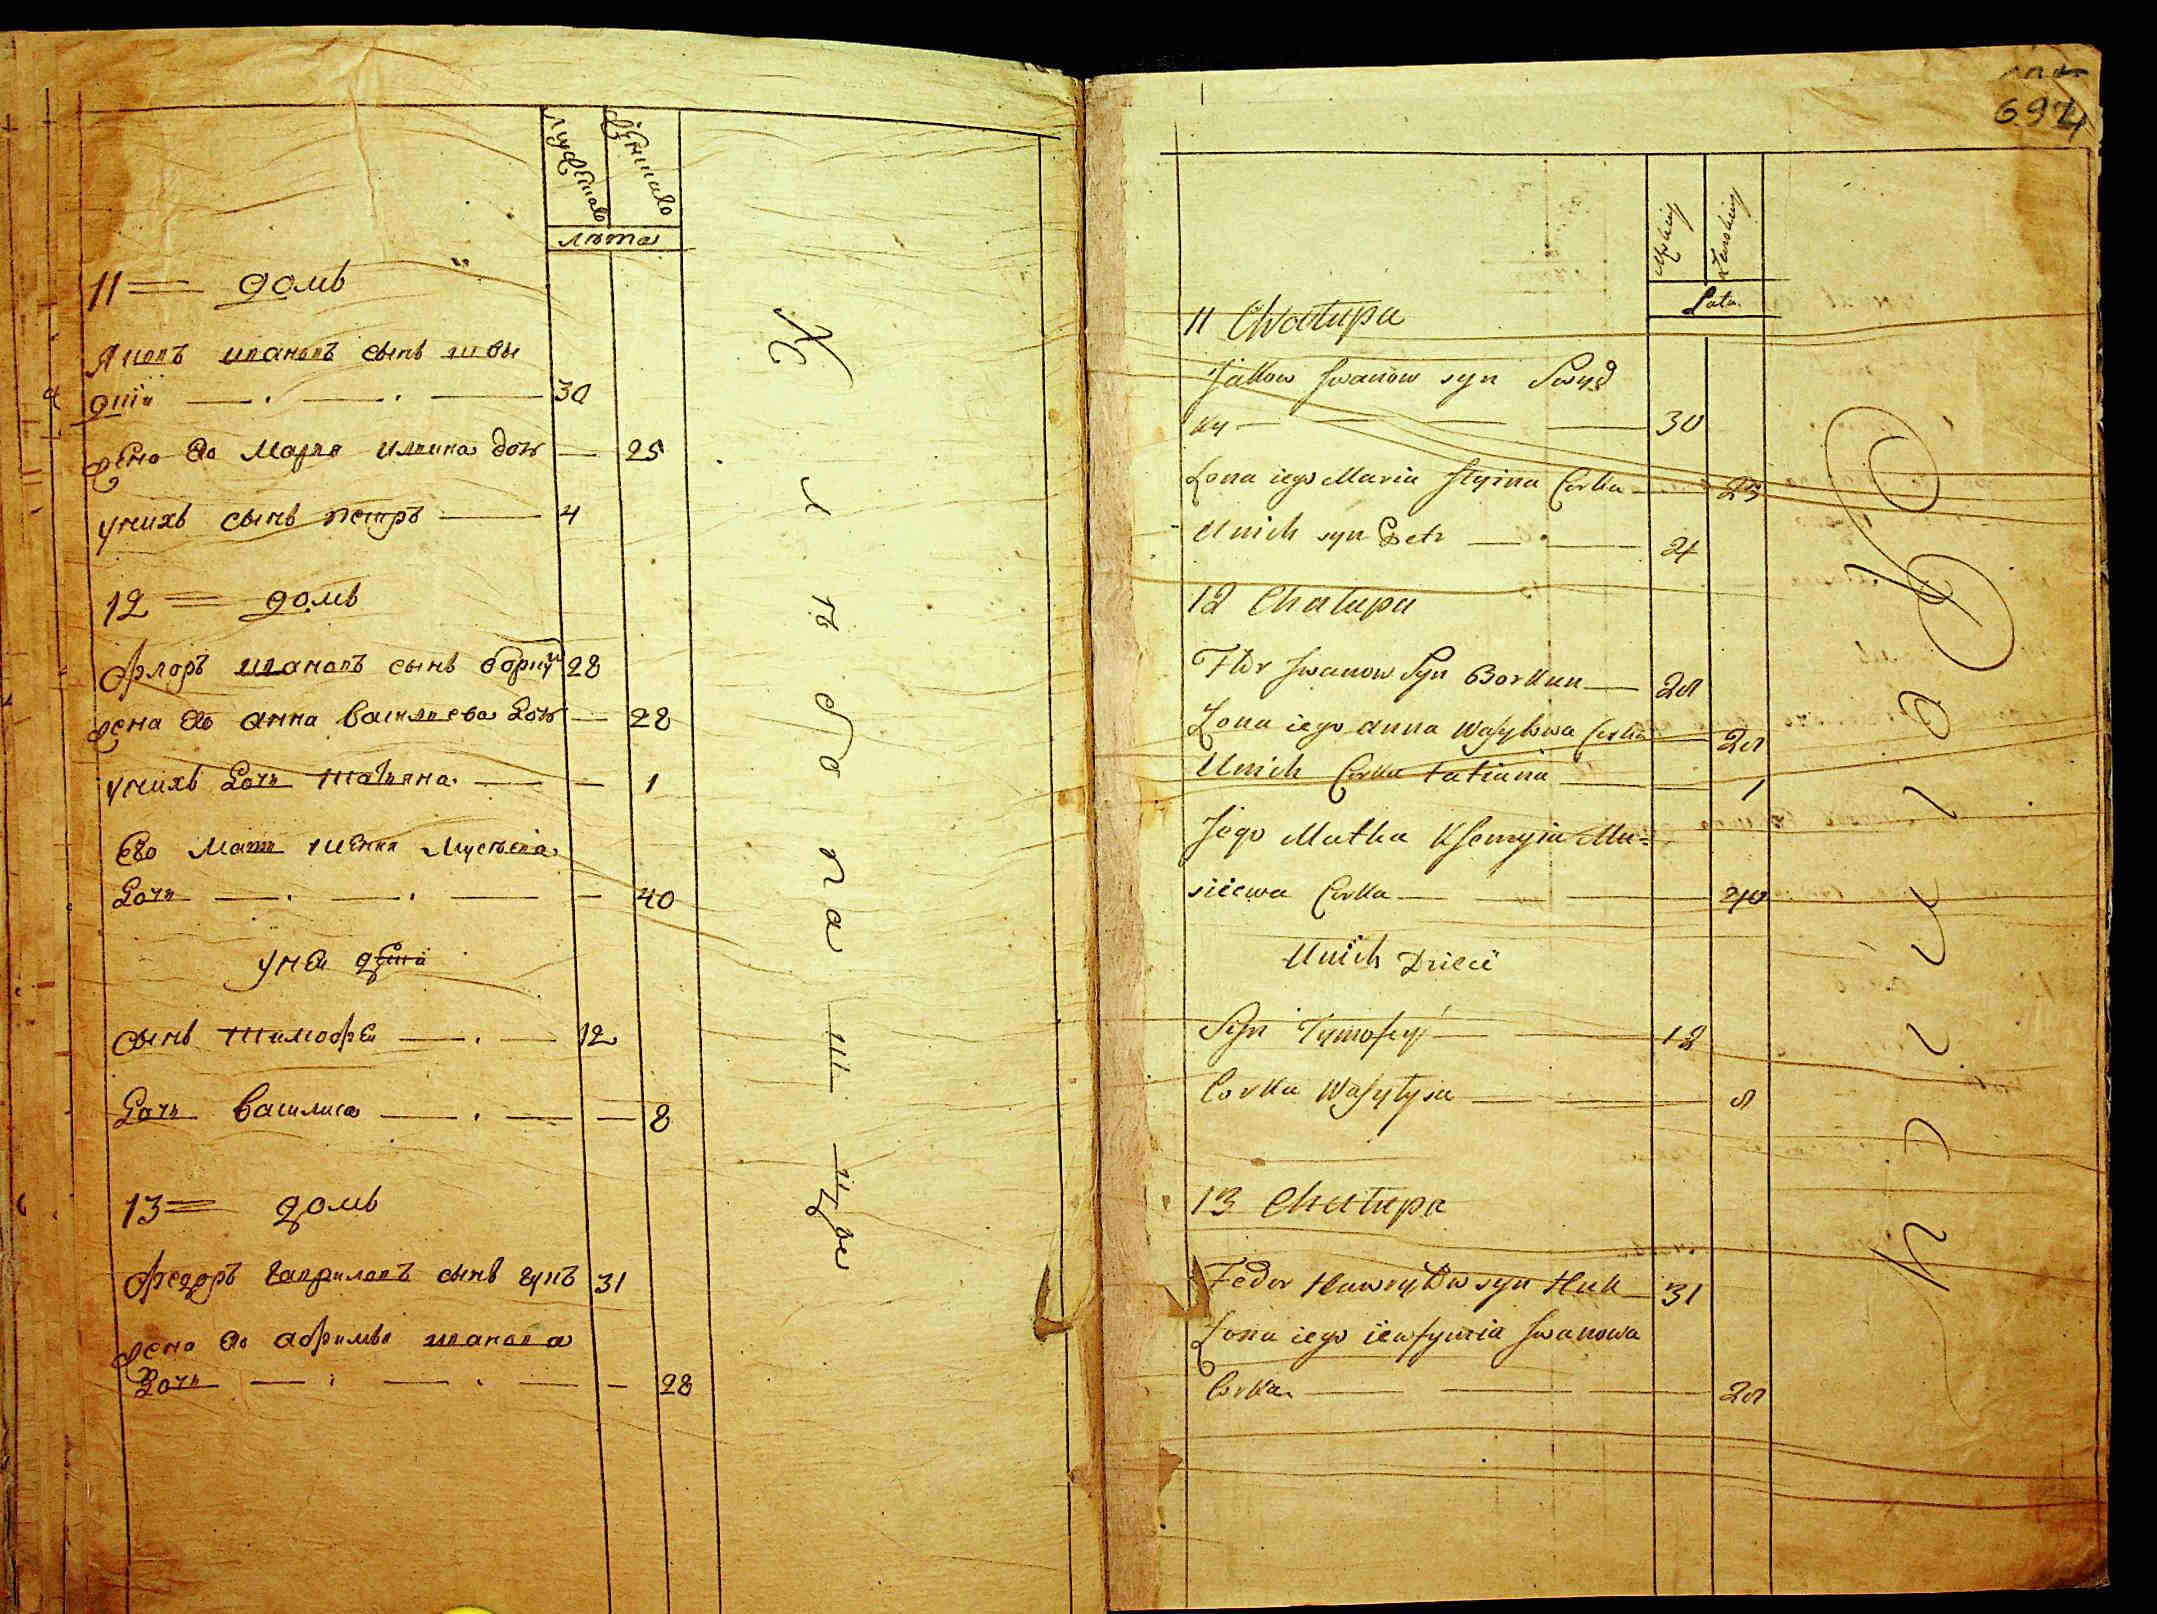 мужеска
женска
лѣта
11 = домъ
Яковъ ивановъ сынъ швы
дкiй 30
жена его Марья ильина дочь 25
унихъ сынъ петръ 4
12 = домъ
Флоръ ивановъ сынъ боркун 28
жена его анна васильева дочь 28
унихъ дочь татьяна 1
его мать
дочь 40
унеи дети
сынъ тимофеи 12
дочь василиса 8
13 = домъ
Федоръ гавриловъ сынъ гукъ 31
жена его ефимья иванова
дочь 28
Хлѣбопашцы
694
Męskiey
Żenskiey
Lata
11 Chałupa
Jakow Iwanow syn Swyd
ky 30
Żona iego Maria Ilyina Corka 25
Unich syn Petr 4
12 Chałupa
Flor Iwanow Syn Borkun 28
Żona iego Anna Wasylowa Corka 28
Unich Corka tatiana 1
Jego Matka Ksemyia Mu=
siiewa Corka 40
Unich Dzieci
Syn Tymofey 12
Corka Wasylysa 8
13 Chałupa
Fedor Hawryłow syn Huk 31
Żona iego iewfymia Iwanowa
Corka 28
Rolnicy